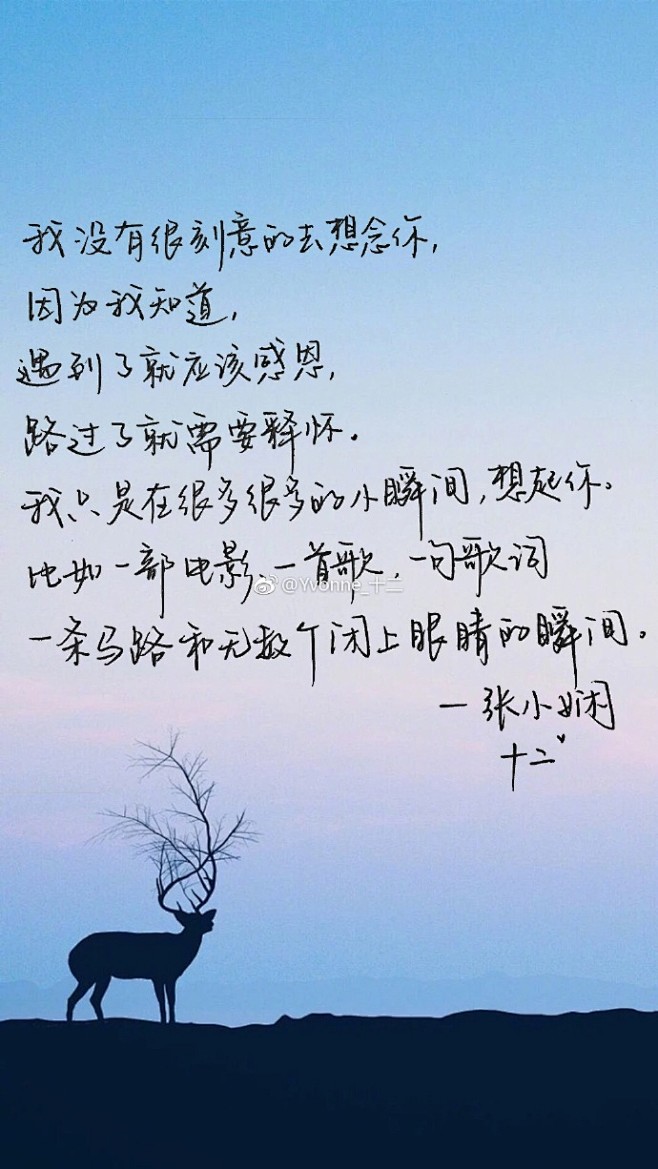 我没有很刻意的去想念你,
因为我知道,
遇到了就应该感恩,
路过了就需要释怀。
我只是在很多很多的小瞬间,想起你。
比如一部电影、一首歌,一句歌词
@Yvonne_十二
一条马路和无数个闭上眼睛的瞬间。
一张小娴
十二